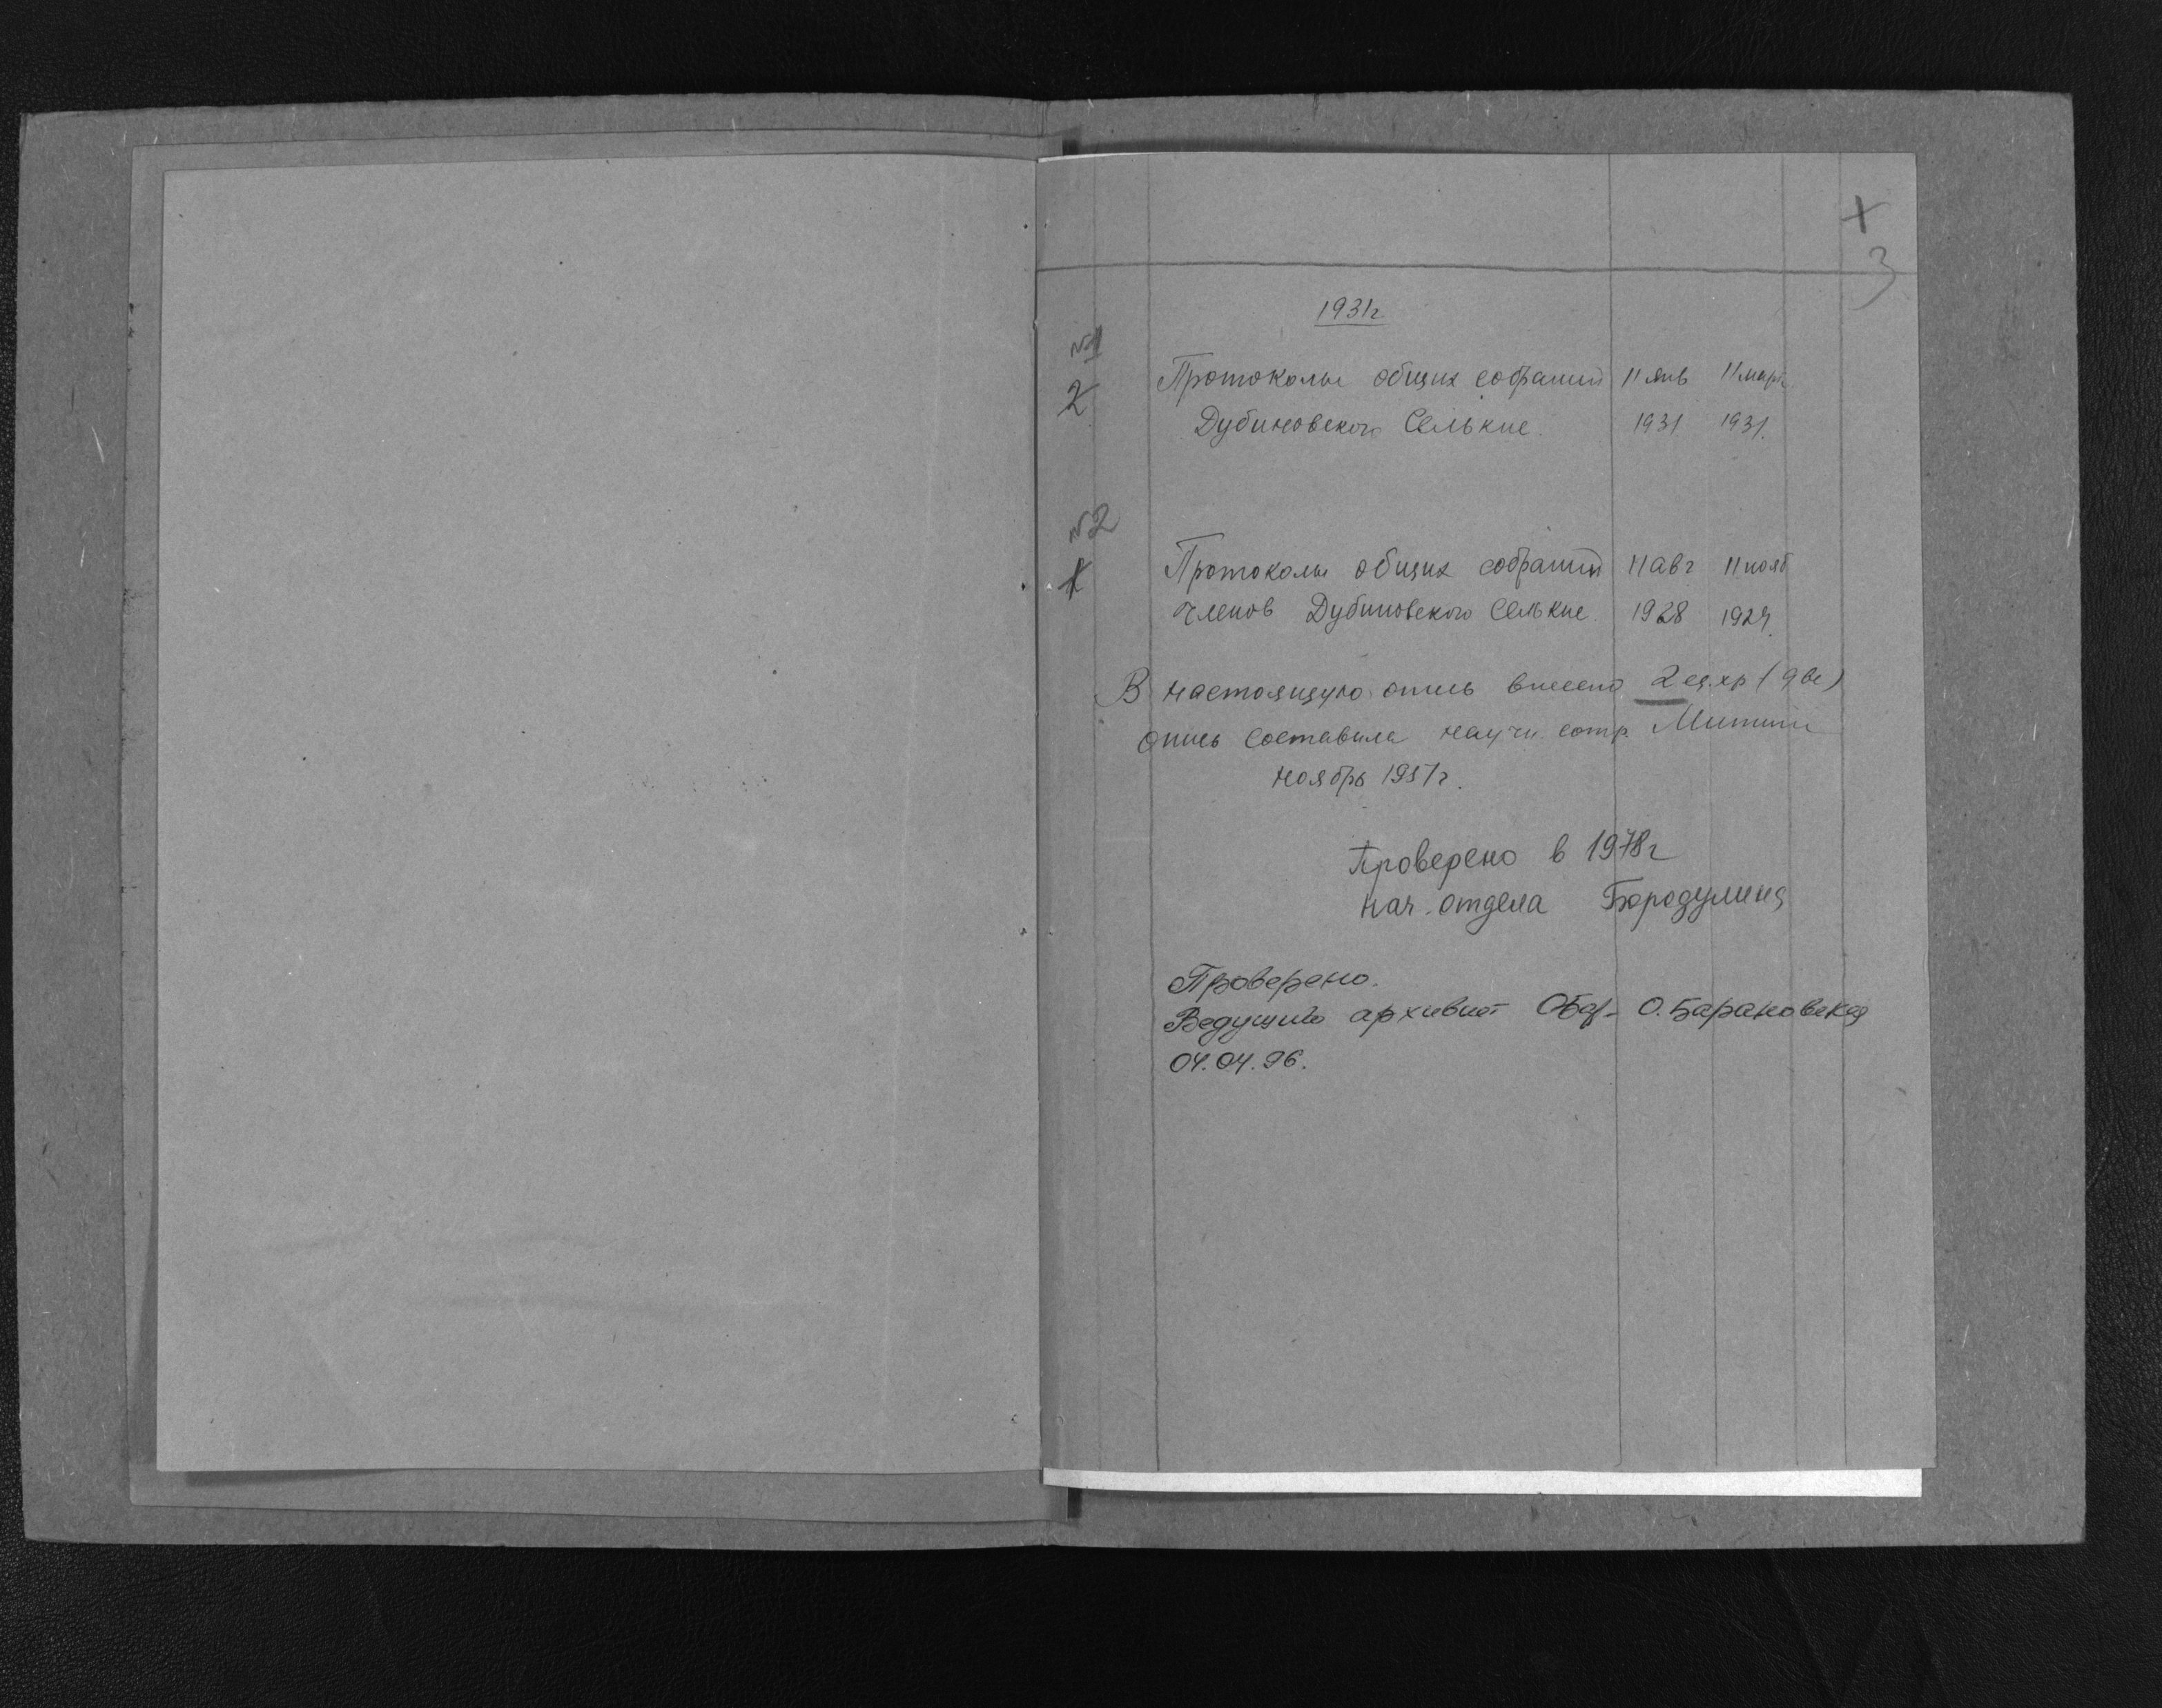 3
1931г
№1
2 Протоколы общих собраний 11 янв 11 март
Дубиновского Селькие. 1931 1931.
№2
1 Протоколы общих собраний 11 авг 11 нояб
членов Дубиновского Селькие. 1928 1929.
В настоящую опись внесено 2 ед.хр (две)
Опись составила научн сотр.
ноябрь 1957г.
Проверено в 1978г
нач. отдела Бородулина
Проверено.
Ведущий архивист О. Барановская
04.04.96.